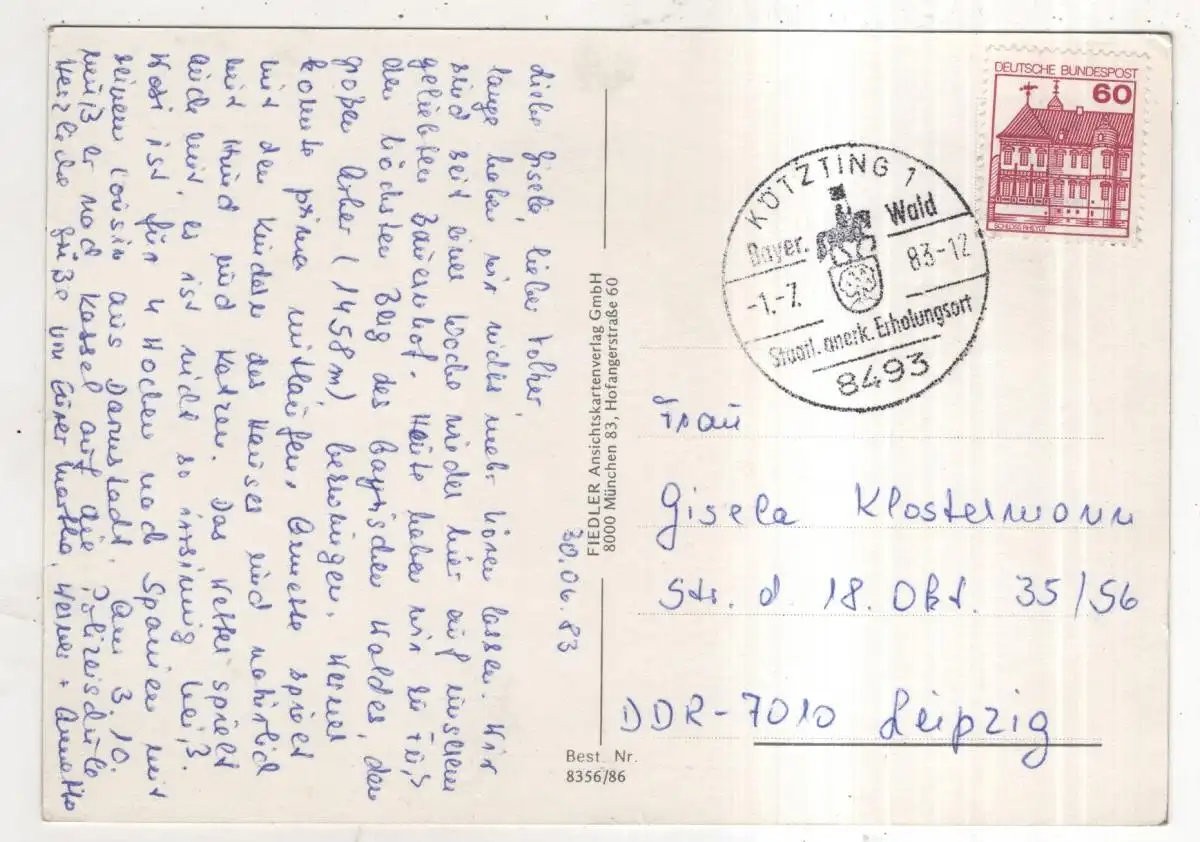 30.06.83
Liebe Gisela, lieber Volker,
lange haben wir nichts mehr hören lassen. Wir
sind seit einer Woche wieder hier auf unserem
geliebten Bauernhof. Heute haben wir zu Fuß
den höchsten Berg des Bayrischen Waldes, den
großen Arber (1458 m) bezwungen. Werner
konnte prima mitlaufen. Annette spielt
mit den Kindern des Hauses und natürlich
mit Hund und Katzen. Das Wetter spielt
auch mit, es ist nicht so irrsinnig heiß.
ist für 4 Wochen nach Spanien mit
seinem Cousin aus Darmstadt. Am 3.10.
muß er nach Kassel auf die Polizeischule
Herzliche Grüße von Eurer Martha, Werner + Annette
FIEDLER Ansichtskartenverlag GmbH
8000 München 83, Hofangerstraße 60
Best. Nr.
8356/86
DEUTSCHE BUNDESPOST
60
SCHLOSS RHEYDT
KÖTZTING 1
Bayer. Wald
-1.-7. 83-12
Staatl. anerk. Erholungsort
8493
Frau
Gisela Klostermann
Str. d. 18. Okt. 35/56
DDR-7010 Leipzig